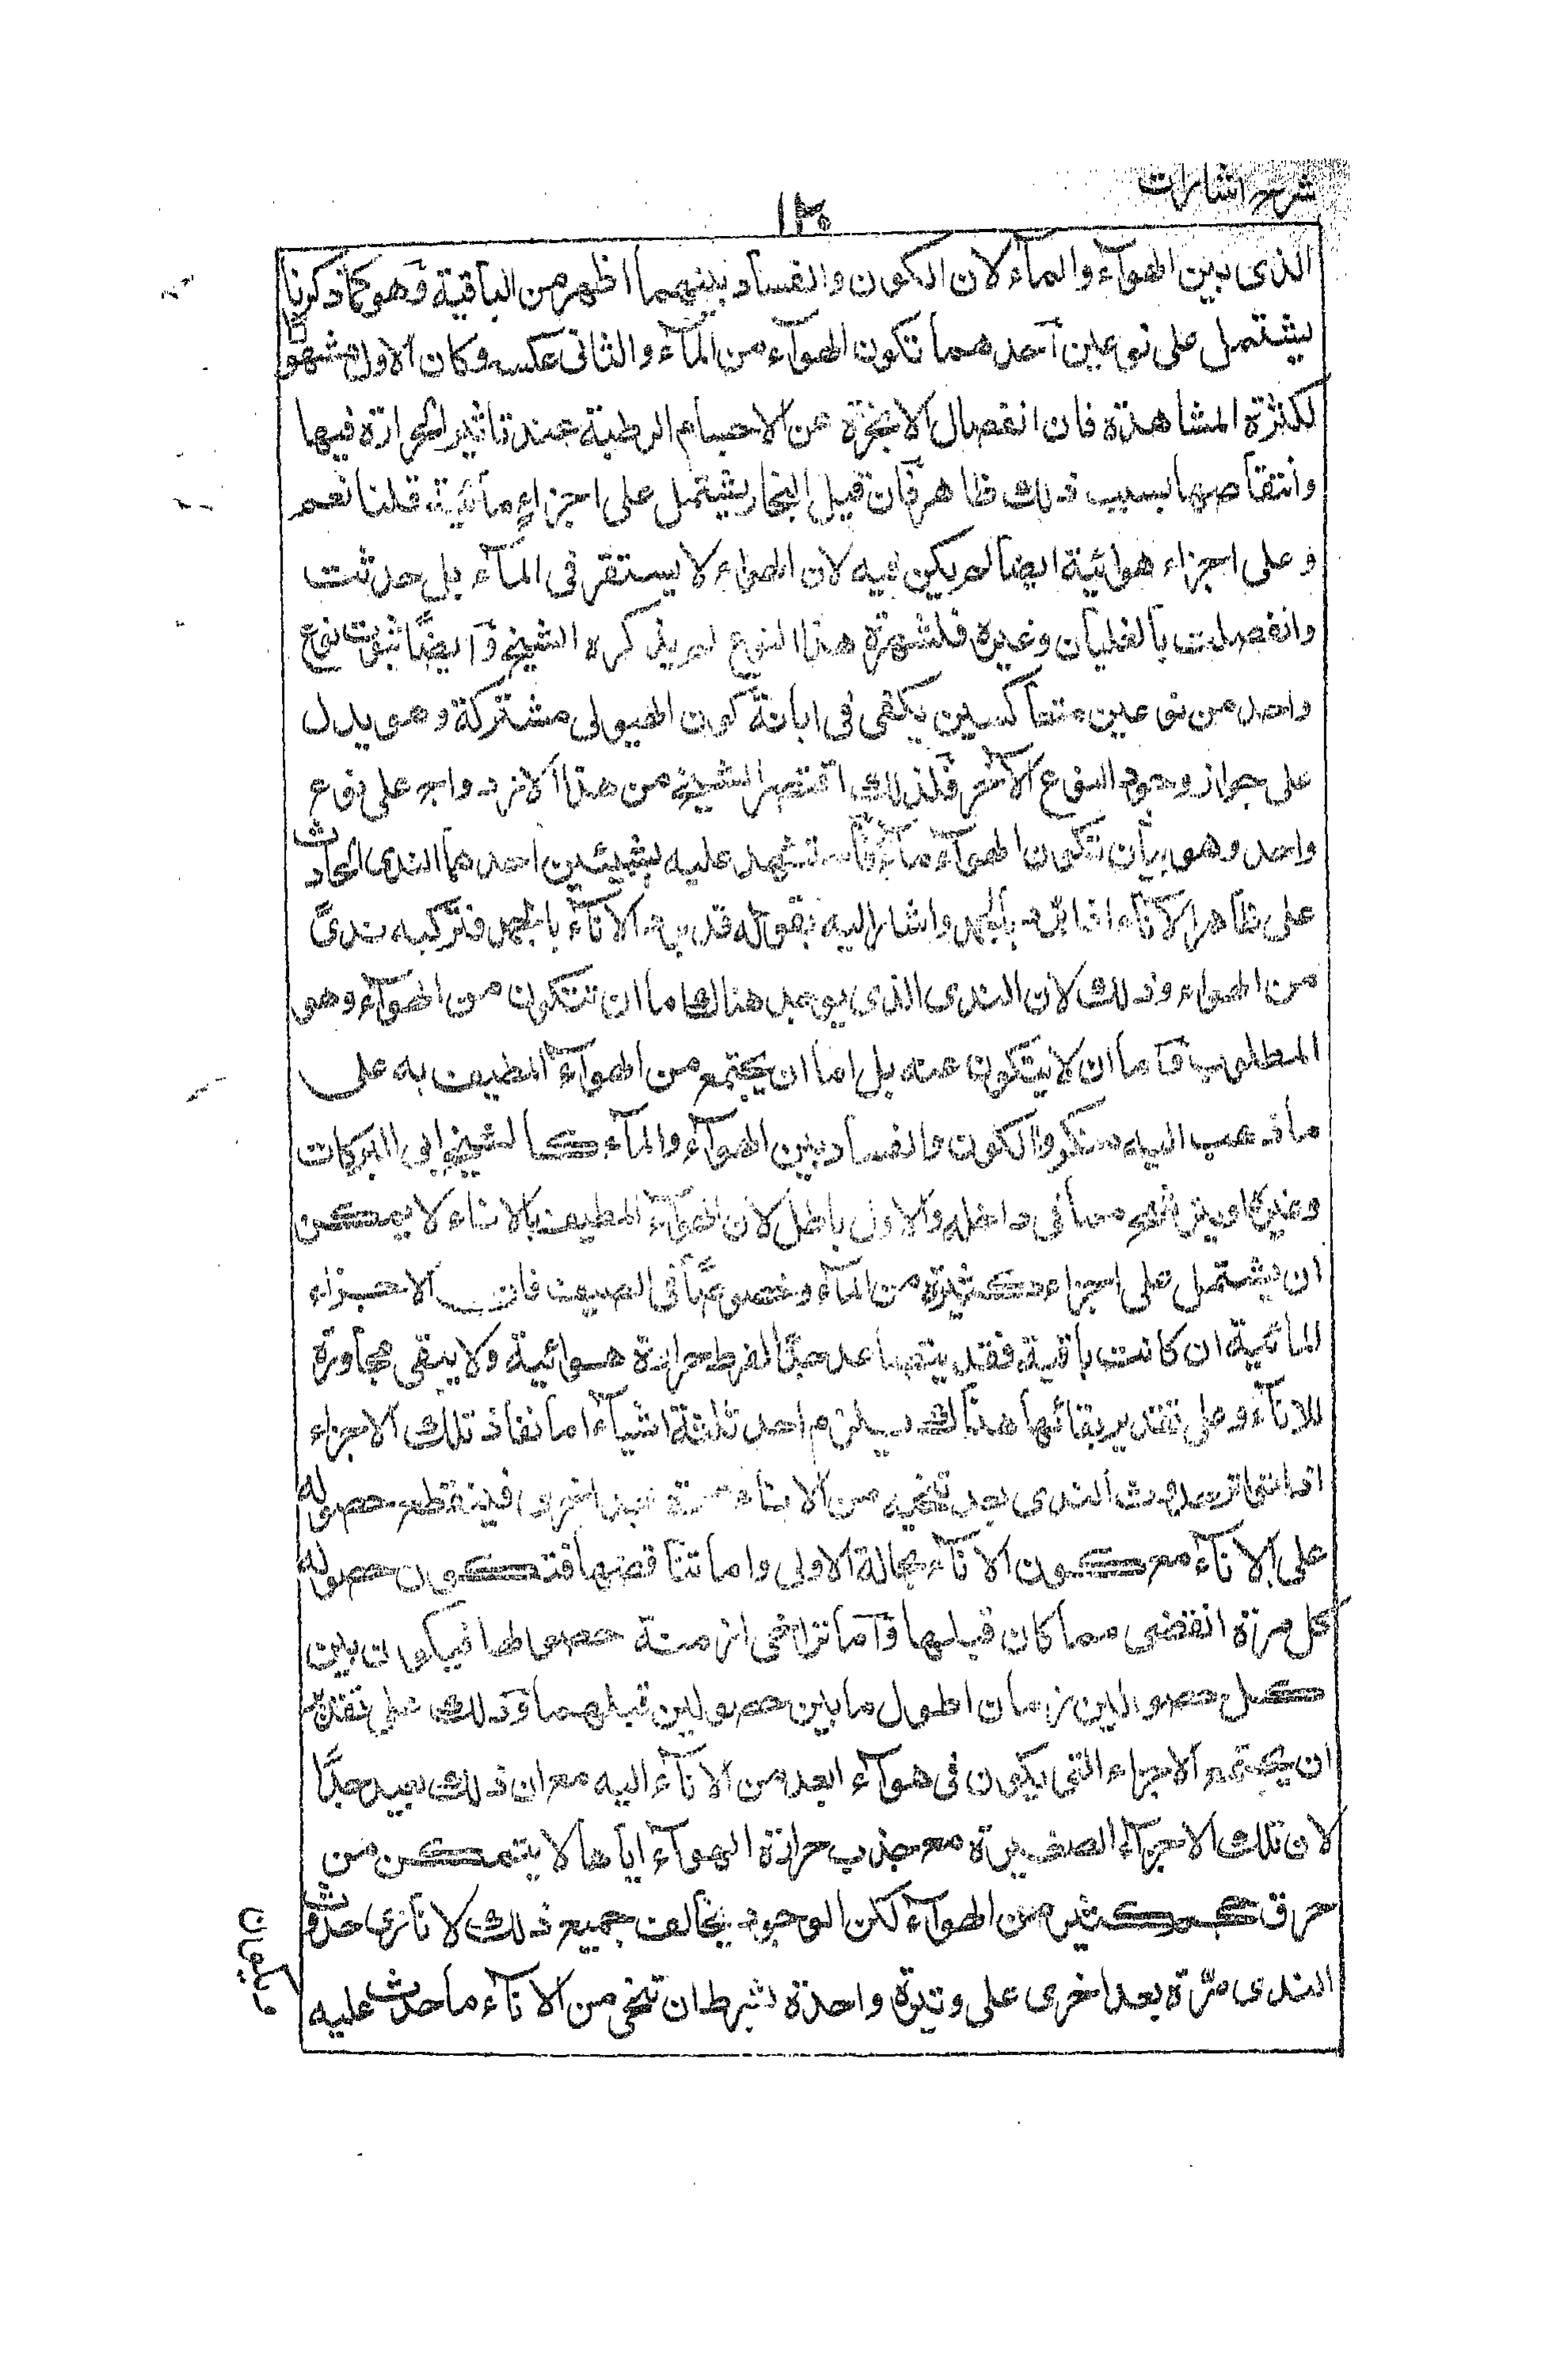 شرح اشارات
١٣٠
الذى بين الهوآء والمآء لان الكون والفساد بينهما اظهر من الباقية وهو كما ذكرنا
يشتمل على نوعين احدهما تكون الهوآء من المآء والثانى عكسه وكان الاول مشهورا
لكثرة المشاهدة فان انفصال الابخرة عن الاجسام الرطبة عند تاثير الحرارة فيها
وانتقاصها بسبب ذلك ظاهر فان قيل البخار يشتمل على اجزاء مائية قلنا نعم
وعلى اجزاء هوائية ايضا لم يكن فيه لان الهواء لا يستقر فى المآء بل حدثت
وانفصلت بالغليان وغيره فلشهرة هذا النوع لم يذكره الشيخ وايضًا ثبوت نوع
واحد من نوعين متعاكسين يكفى فى ابانة كون الهيولى مشتركة وهو يدل
على جواز وجود النوع الآخر فلذلك اقتصر الشيخ من هذا الازدواج على نوع
واحد وهو بيان تكون الهوآء مآء فاستشهد عليه بشيئين احدهما الندى الحادث
على ظاهر الانآء اذا برد بالجمد واشار اليه بقوله قد يبرد الانآء بالجمد فتركبه ندىً
من الهواء وذلك لان الندى الذى يوجد هناك اما ان تتكون من الهوآء وهو
المطلوب واما ان لا يتكون عنه بل اما ان يجتمع من الهوآء المطيف به على
ما ذهب اليه منكروا الكون والفساد بين الهوآء والمآء كالشيخ ابى البركات
وغيره او يترشح مما فى داخله والاول باطل لان الهوآء المطيف بالاناء لا يمكن
ان يشتمل على اجزاء كثيرة من المآء وخصوصًا فى الصيف فان الاجزاء
المائية ان كانت باقية فقد يتصاعد جدًا لفرط حرارة هوائية ولا يبقى مجاورة
للانآء وعلى تقدير بقائها هناك يلزم احد ثلثة اشيآء اما نفاذ تلك الاجزاء
اذا حدوث الندى بعد تنحيه من الاناء مرة بعد اخرى فينقطع حصوله
على الانآء مع كون الانآء بحالة الاولى واما تناقصها فتكون حصوله
كل مرة انقضى مما كان قبلها واما تراخى ازمنة حصولها فيكون بين
كل حصولين زمان اطول ما بين حصولين قبلهما وذلك على تقدير
ان يجتمع الاجزاء التى يكون فى هوآء ابعد من الانآء اليه مع ان ذلك بعيد جدًا
لان تلك الاجزآء الصغيرة مع جذب حرارة الهوآء اياها لا يتمكن من
خرق كثير من الهوآء لكن الوجود يخالف جميع ذلك لانا نرى حدوث
الندى مرّة بعد اخرى على وتيرة واحدة بشرط ان تنحى من الانآء ما حدث عليه